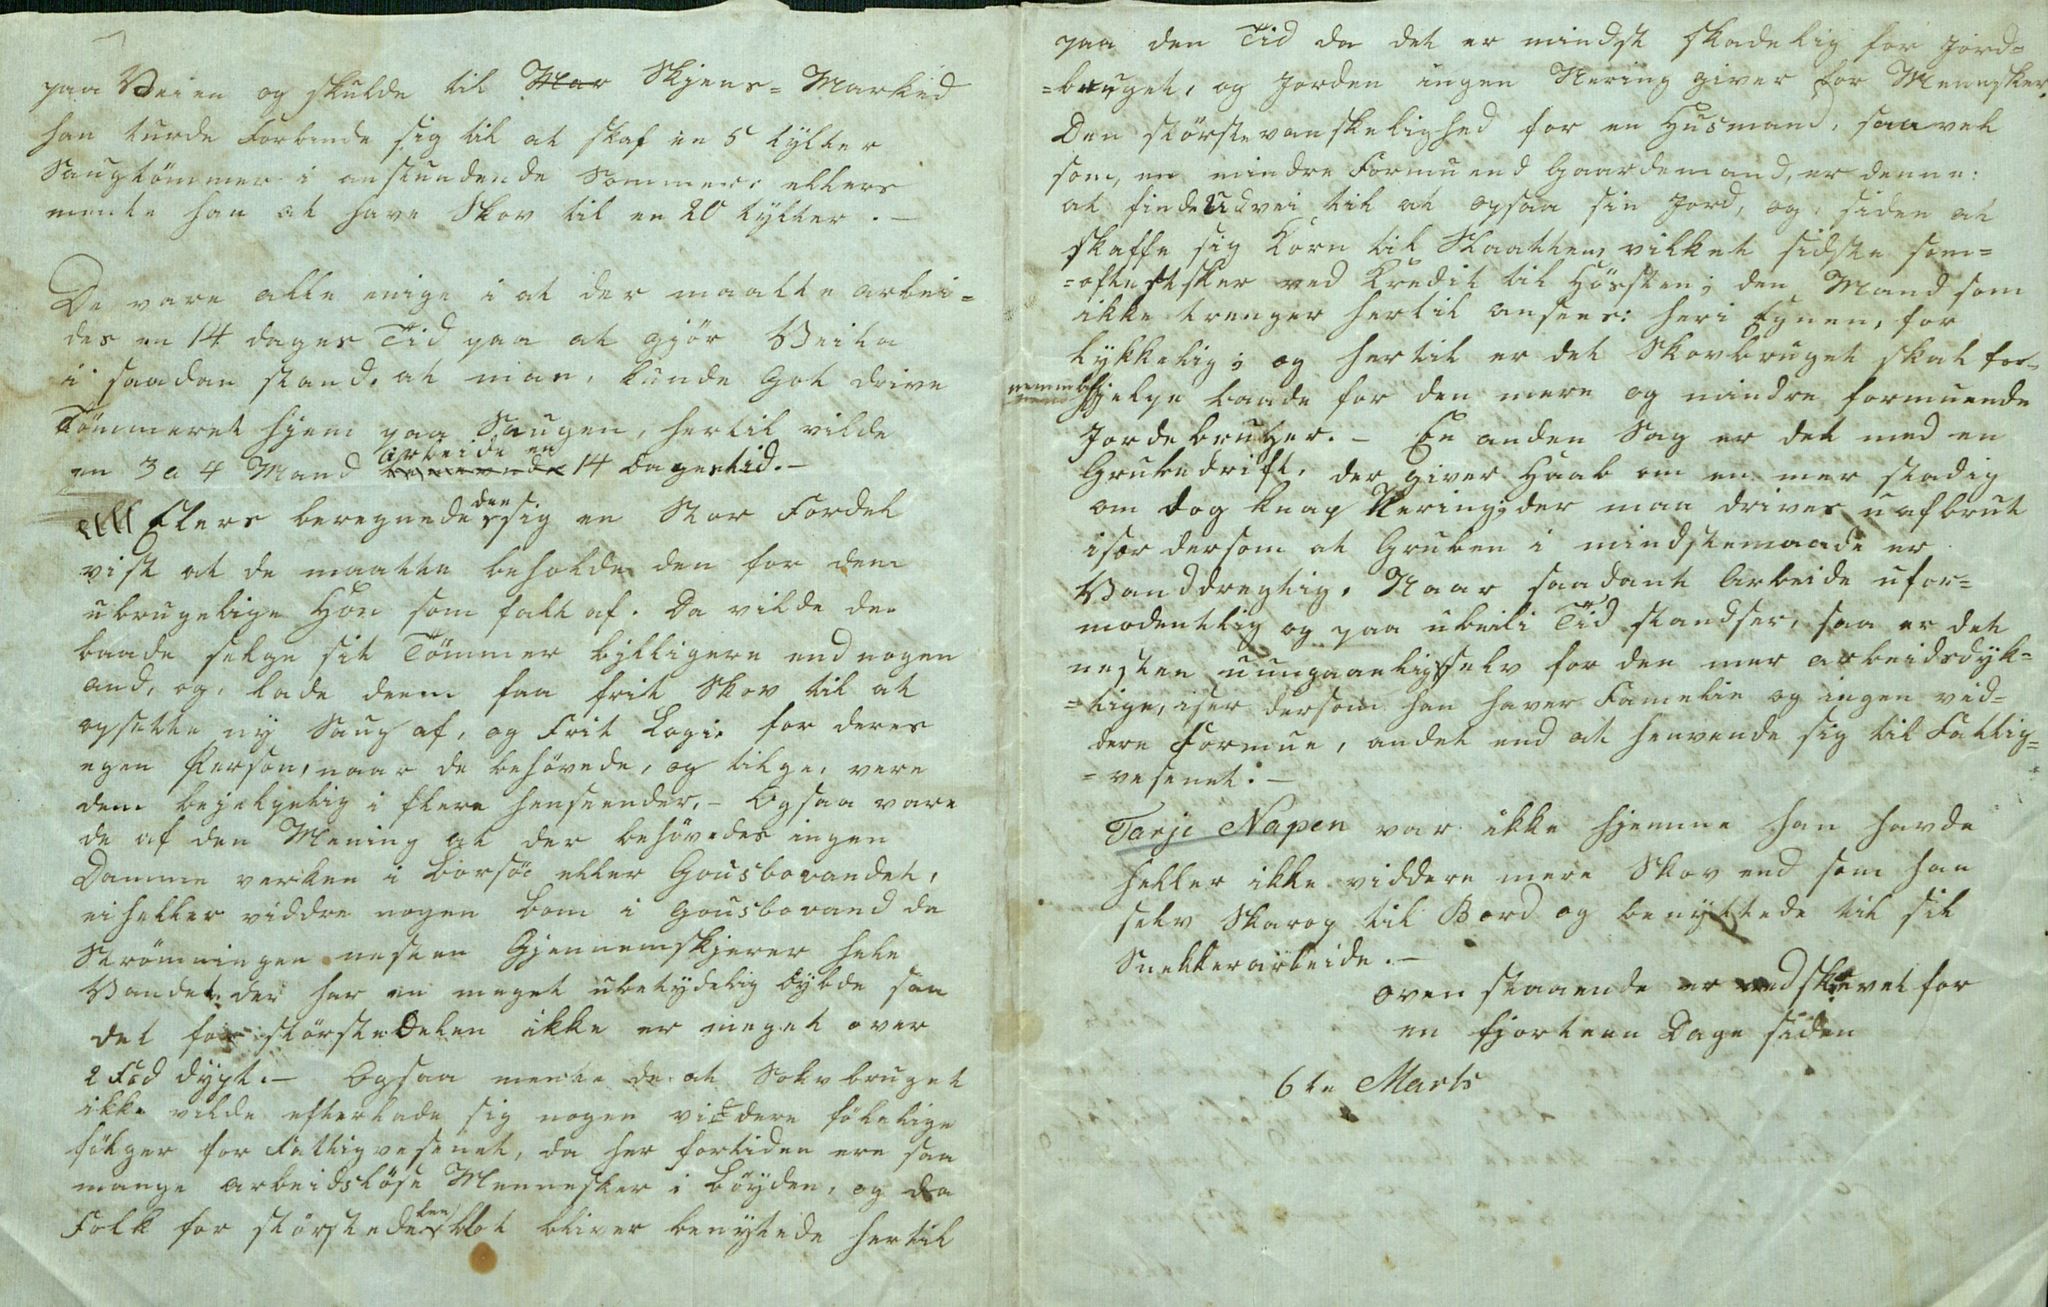 paa Veien og skulde til Mar Skjens-Marked
han turde Forbinde sig til at skaf en 5 tylter
Saugtömmer i anstundende Sommer: ellers
mente han at have Skov til en 20 tylter. —
De vare alle enige i at der maatte arbei-
des en 14 dages Tid paa at gjör Veita
i saadan stand, at man, kunde Got drive
Tömmeret hjem paa Saugen, hertil vilde
en 3 a 4 Mand arbeide en 14 Dagestid. —
Elers beregnede den sig en Stor Fordel
vist at de maatte beholde den for dem
ubrugelige Hön som falt af. Da vilde de
baade selge sit Tömmer bylligere end nogen
and, og, lade deem faa frit Skov til at
opsette ny Saug af, og Frit Logi for deres
egen Person, naar de behövede, og tilge, vere
dem behjelpelig i flere henseender, — Ogsaa vare
de af den Mening at der behövedes ingen
Damme verken i Borsöe eller Gousbovandet,
ei heller viddre nogen bom i Gousbovand da
Strömningen nesten Gjennemskjerer hele
Vandet, der har en meget ubetydelig dybde saa
det for störstedelen ikke er meget over
2 Fod dypt. — Ogsaa mente de at Sokvbruget
ikke vilde efterlade sig nogen viddere fölelige
fölger for Fattigvesenet, da her fortiden ere saa
mange arbeidslöse Mennesker i Böyden, og da
Folk for störstedelen blot bliver benyttede hertil
paa den Tid da det er mindst skadelig for Jord-
-bruget, og Jorden ingen Nering giver for Mennesker.
Den störstevanskelighed for en Husmand, saavel
som, en mindre Formuend Gaardemand, er denne:
at finde Udvei til at opsaa sin Jord, og, siden at
skaffe sig Korn til Slaatten, vilket sidste som-
-oftest sker ved Kredit til Hösten; den Mand som
ikke trenger hertil ansees: heri Egnen, for
lykkelig; og hertil er det Skovbruget skal for-
nemmelig hjelpe baade for den mere og mindre formuende
Jordebruger. — En anden Sag er det med en
Grubedrift, der giver Haab om en mer stadig
om dog knap Nering; der maa drives uafbrut
især dersom at Gruben i mindstemaade er
Vanddregtig. Naar saadant Arbeide ufor-
modentlig og paa ubeili Tid standser, saa er det
nesten uungaaelig selv for den mer arbeidsdyk-
-tige, iser dersom han haver Familie og ingen vid-
dere Formue, andet end at henvende sig til Fattig-
-vesenet. —
Tarje Napen var ikke hjemme han havde
heller ikke viddere mere Skov end som han
selv Skarop til Bord og benyttede til sit
Snekkerarbeide. —
oven staaende er nedskrevet for
en fjorteen Dage siden
6te Marts